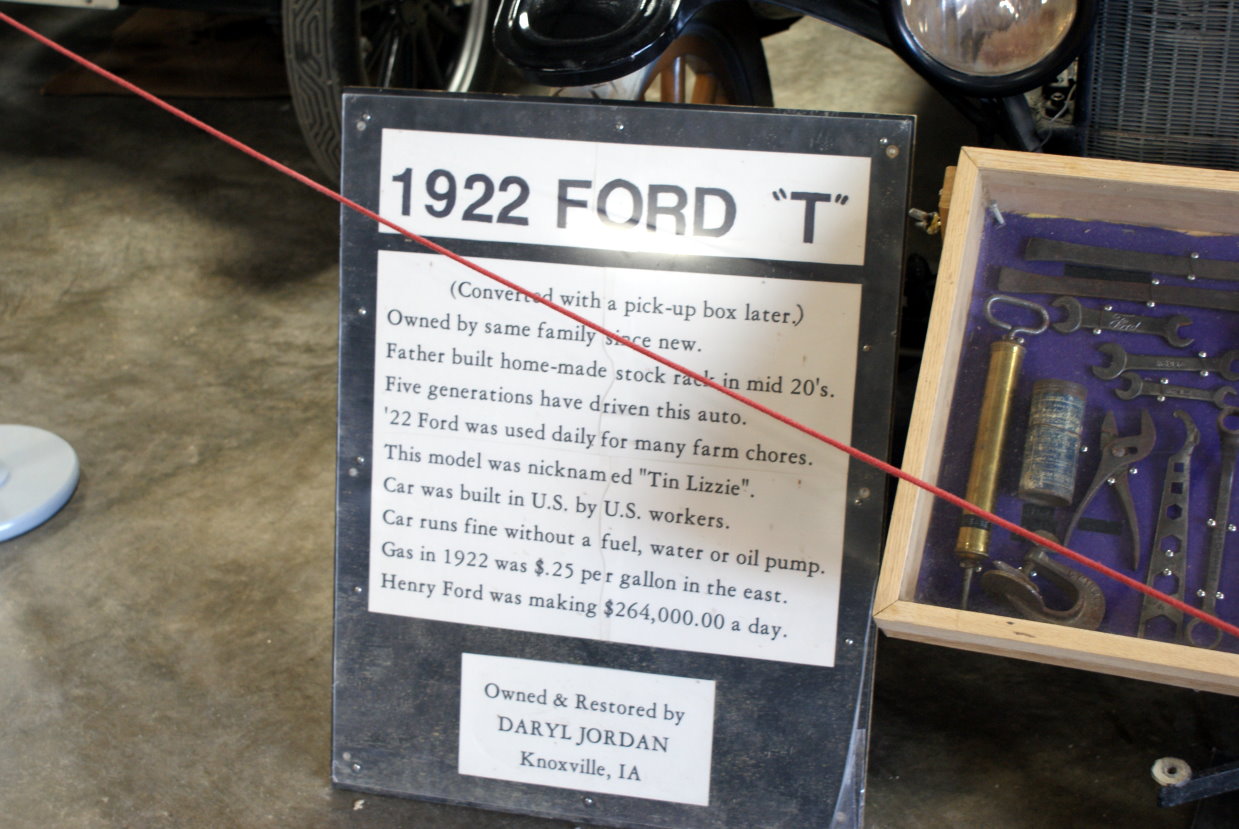 1922 FORD "T"
(Converted with a pick-up box later.)
Owned by same family since new.
Father built home-made stock rack in mid 20's.
Five generations have driven this auto.
'22 Ford was used daily for many farm chores.
This model was nicknamed "Tin Lizzie".
Car was built in U.S. by U.S. workers.
Car runs fine without a fuel, water or oil pump.
Gas in 1922 was $.25 per gallon in the east.
Henry Ford was making $264,000.00 a day.
Owned & Restored by
DARYL JORDAN
Knoxville, IA
Ford